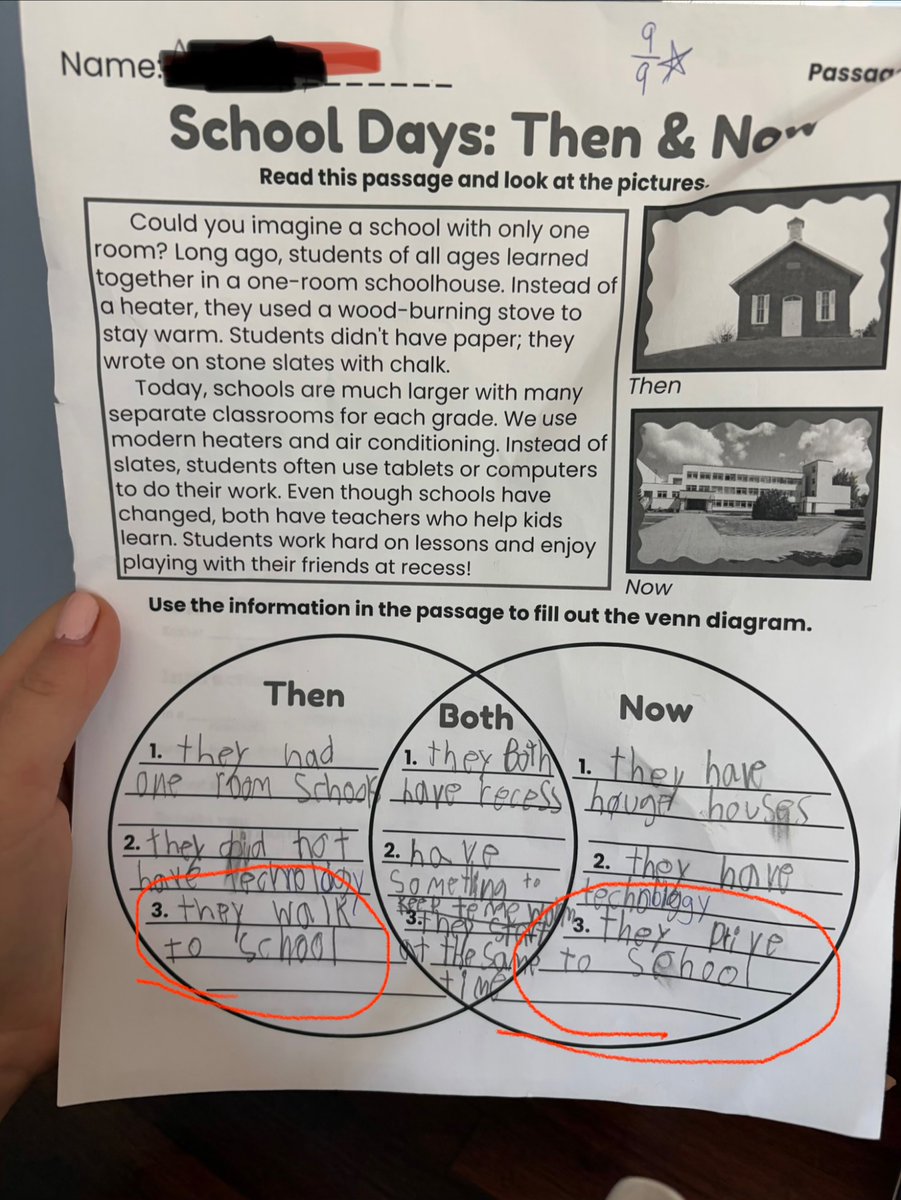 Name:
9
9
Passag
School Days: Then & Now
Read this passage and look at the pictures.
Could you imagine a school with only one
room? Long ago, students of all ages learned
together in a one-room schoolhouse. Instead of
a heater, they used a wood-burning stove to
stay warm. Students didn't have paper; they
wrote on stone slates with chalk.
Today, schools are much larger with many
separate classrooms for each grade. We use
modern heaters and air conditioning. Instead of
slates, students often use tablets or computers
to do their work. Even though schools have
changed, both have teachers who help kids
learn. Students work hard on lessons and enjoy
playing with their friends at recess!
Then
Now
Use the information in the passage to fill out the venn diagram.
Then
1. they had
one room School
2. they did not
have technology
3. they walk
to school
Both
1. they Both
have recess
2. have
Someting to
keep
3. they start
at the same
time
Now
1. they have
houses
2. they have
technology
3. they Drive
to school